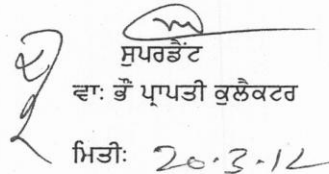 ਸੁਪਰਡੈਂਟ
ਵਾ: ਭੌਂ ਪ੍ਰਾਪਤੀ ਕੁਲੈਕਟਰ
ਮਿਤੀ: 20.3.12